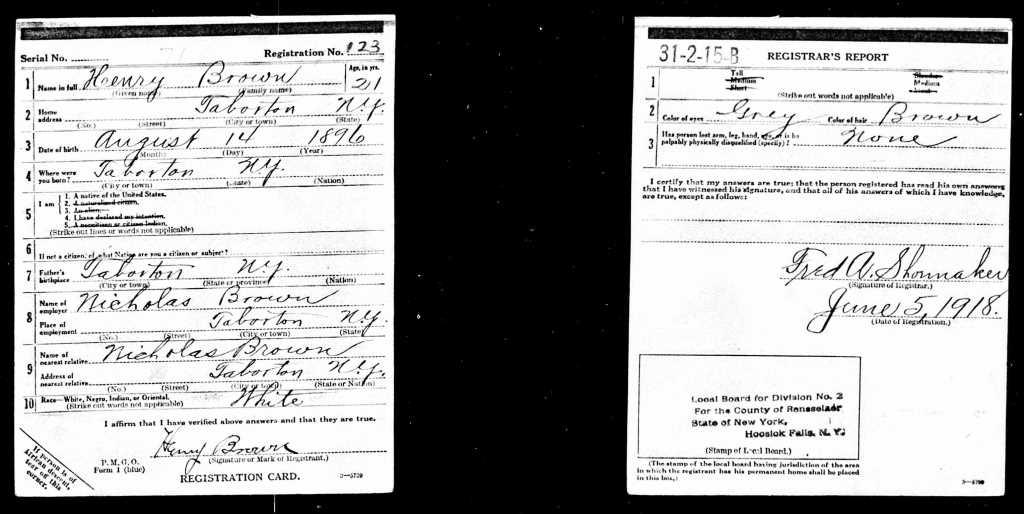 Serial No. Registration No. 123
1 Name in full Henry Brown Age, in yrs. 21
(Given name) (Family name)
2 Home address Taborton N.Y.
(No.) (Street) (City or town) (State)
3 Date of birth August 14 1896
(Month) (Day) (Year)
4 Where were you born? Taborton N.Y.
(City or town) (State) (Nation)
5 I am
1. A native of the United States.
2. A naturalized citizen.
3. An alien.
4. I have declared my intention.
5. A noncitizen or citizen Indian.
(Strike out lines or words not applicable)
6 If not a citizen, of what Nation are you a citizen or subject?
7 Father's birthplace Taborton N.Y.
(City or town) (State or province) (Nation)
8 Name of employer Nicholas Brown
Place of employment Taborton N.Y.
(No.) (Street) (City or town) (State)
9 Name of nearest relative Nicholas Brown
Address of nearest relative Taborton N.Y.
(No.) (Street) (City or town) (State or Nation)
10 Race—White, Negro, Indian, or Oriental. White
(Strike out words not applicable)
I affirm that I have verified above answers and that they are true.
Henry Brown
(Signature or Mark of Registrant.)
P. M. G. O.
Form 1 (blue)
REGISTRATION CARD.
3—5739
If person is of
African descent,
tear off this
corner.
31-2-15-B REGISTRAR'S REPORT
1 Tall Slender
Medium Medium
Short Stout
(Strike out words not applicable)
2 Color of eyes Grey Color of hair Brown
3 Has person lost arm, leg, hand, eye, or is he
palpably physically disqualified (specify)? None
I certify that my answers are true; that the person registered has read his own answers
that I have witnessed his signature, and that all of his answers of which I have knowledge,
are true, except as follows:
Fred A. Shonmaker
(Signature of Registrar.)
June 5, 1918.
(Date of Registration.)
Local Board for Division No. 2
For the County of Rensselaer
State of New York,
Hoosick Falls, N.Y.
(Stamp of Local Board.)
(The stamp of the local board having jurisdiction of the area
in which the registrant has his permanent home shall be placed
in this box.)
3—5739